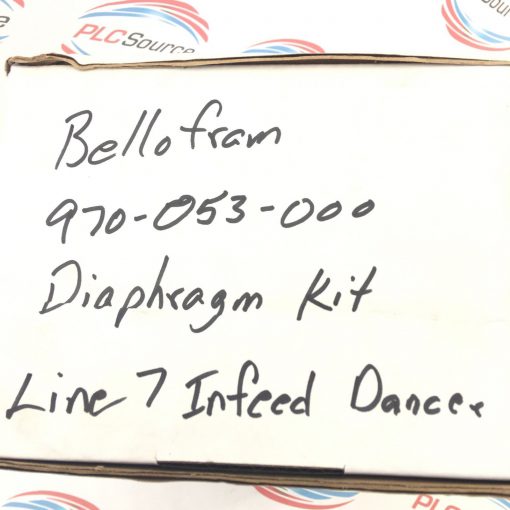 PLCSource
Bellofram
970-053-000
Diaphragm Kit
Line 7 Infeed Dancer